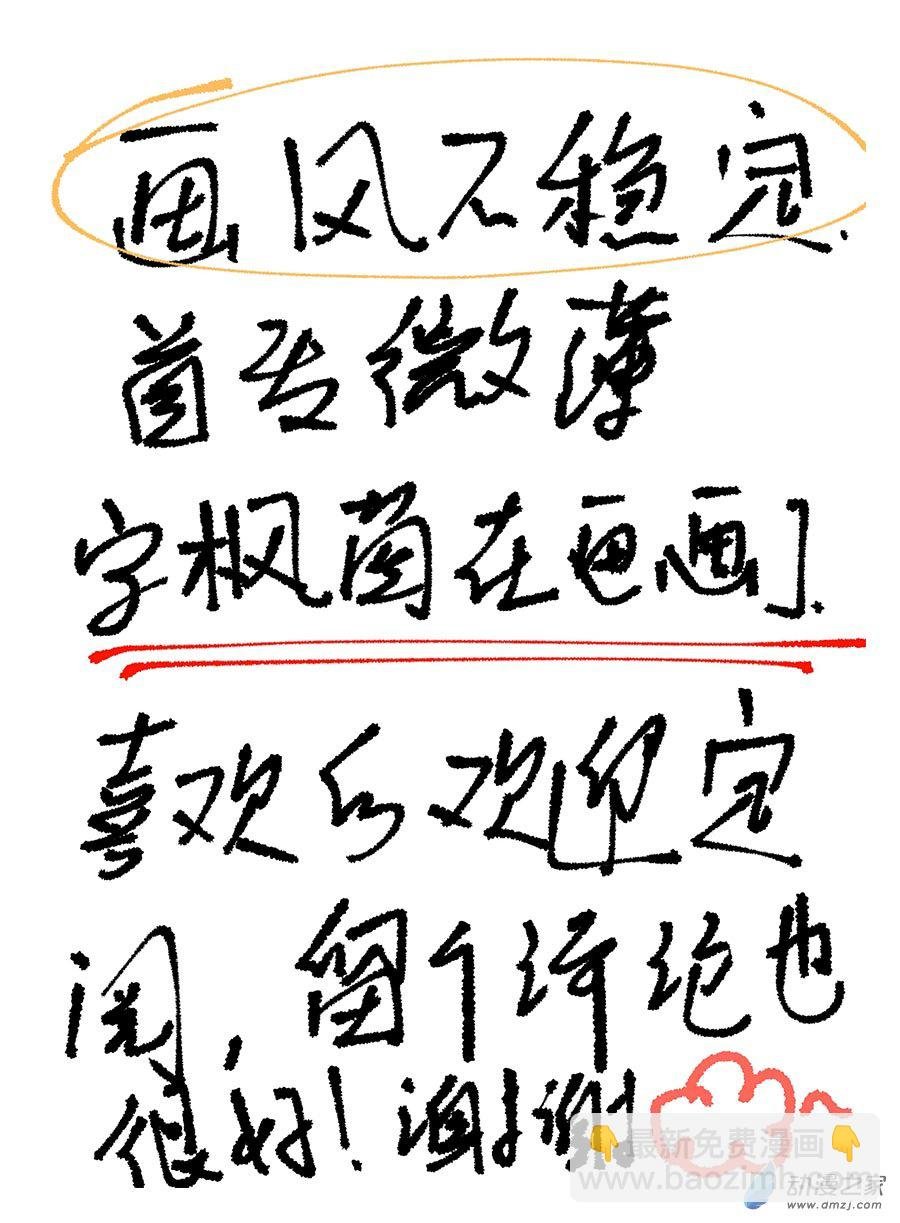 画风不稳定.
首发微薄
字枫菌在画画].
喜欢的欢迎定
阅，留个评论也
很好！谢谢
👇最新免费漫画👇
www.baozimh.com
动漫之家
www.dmzj.com